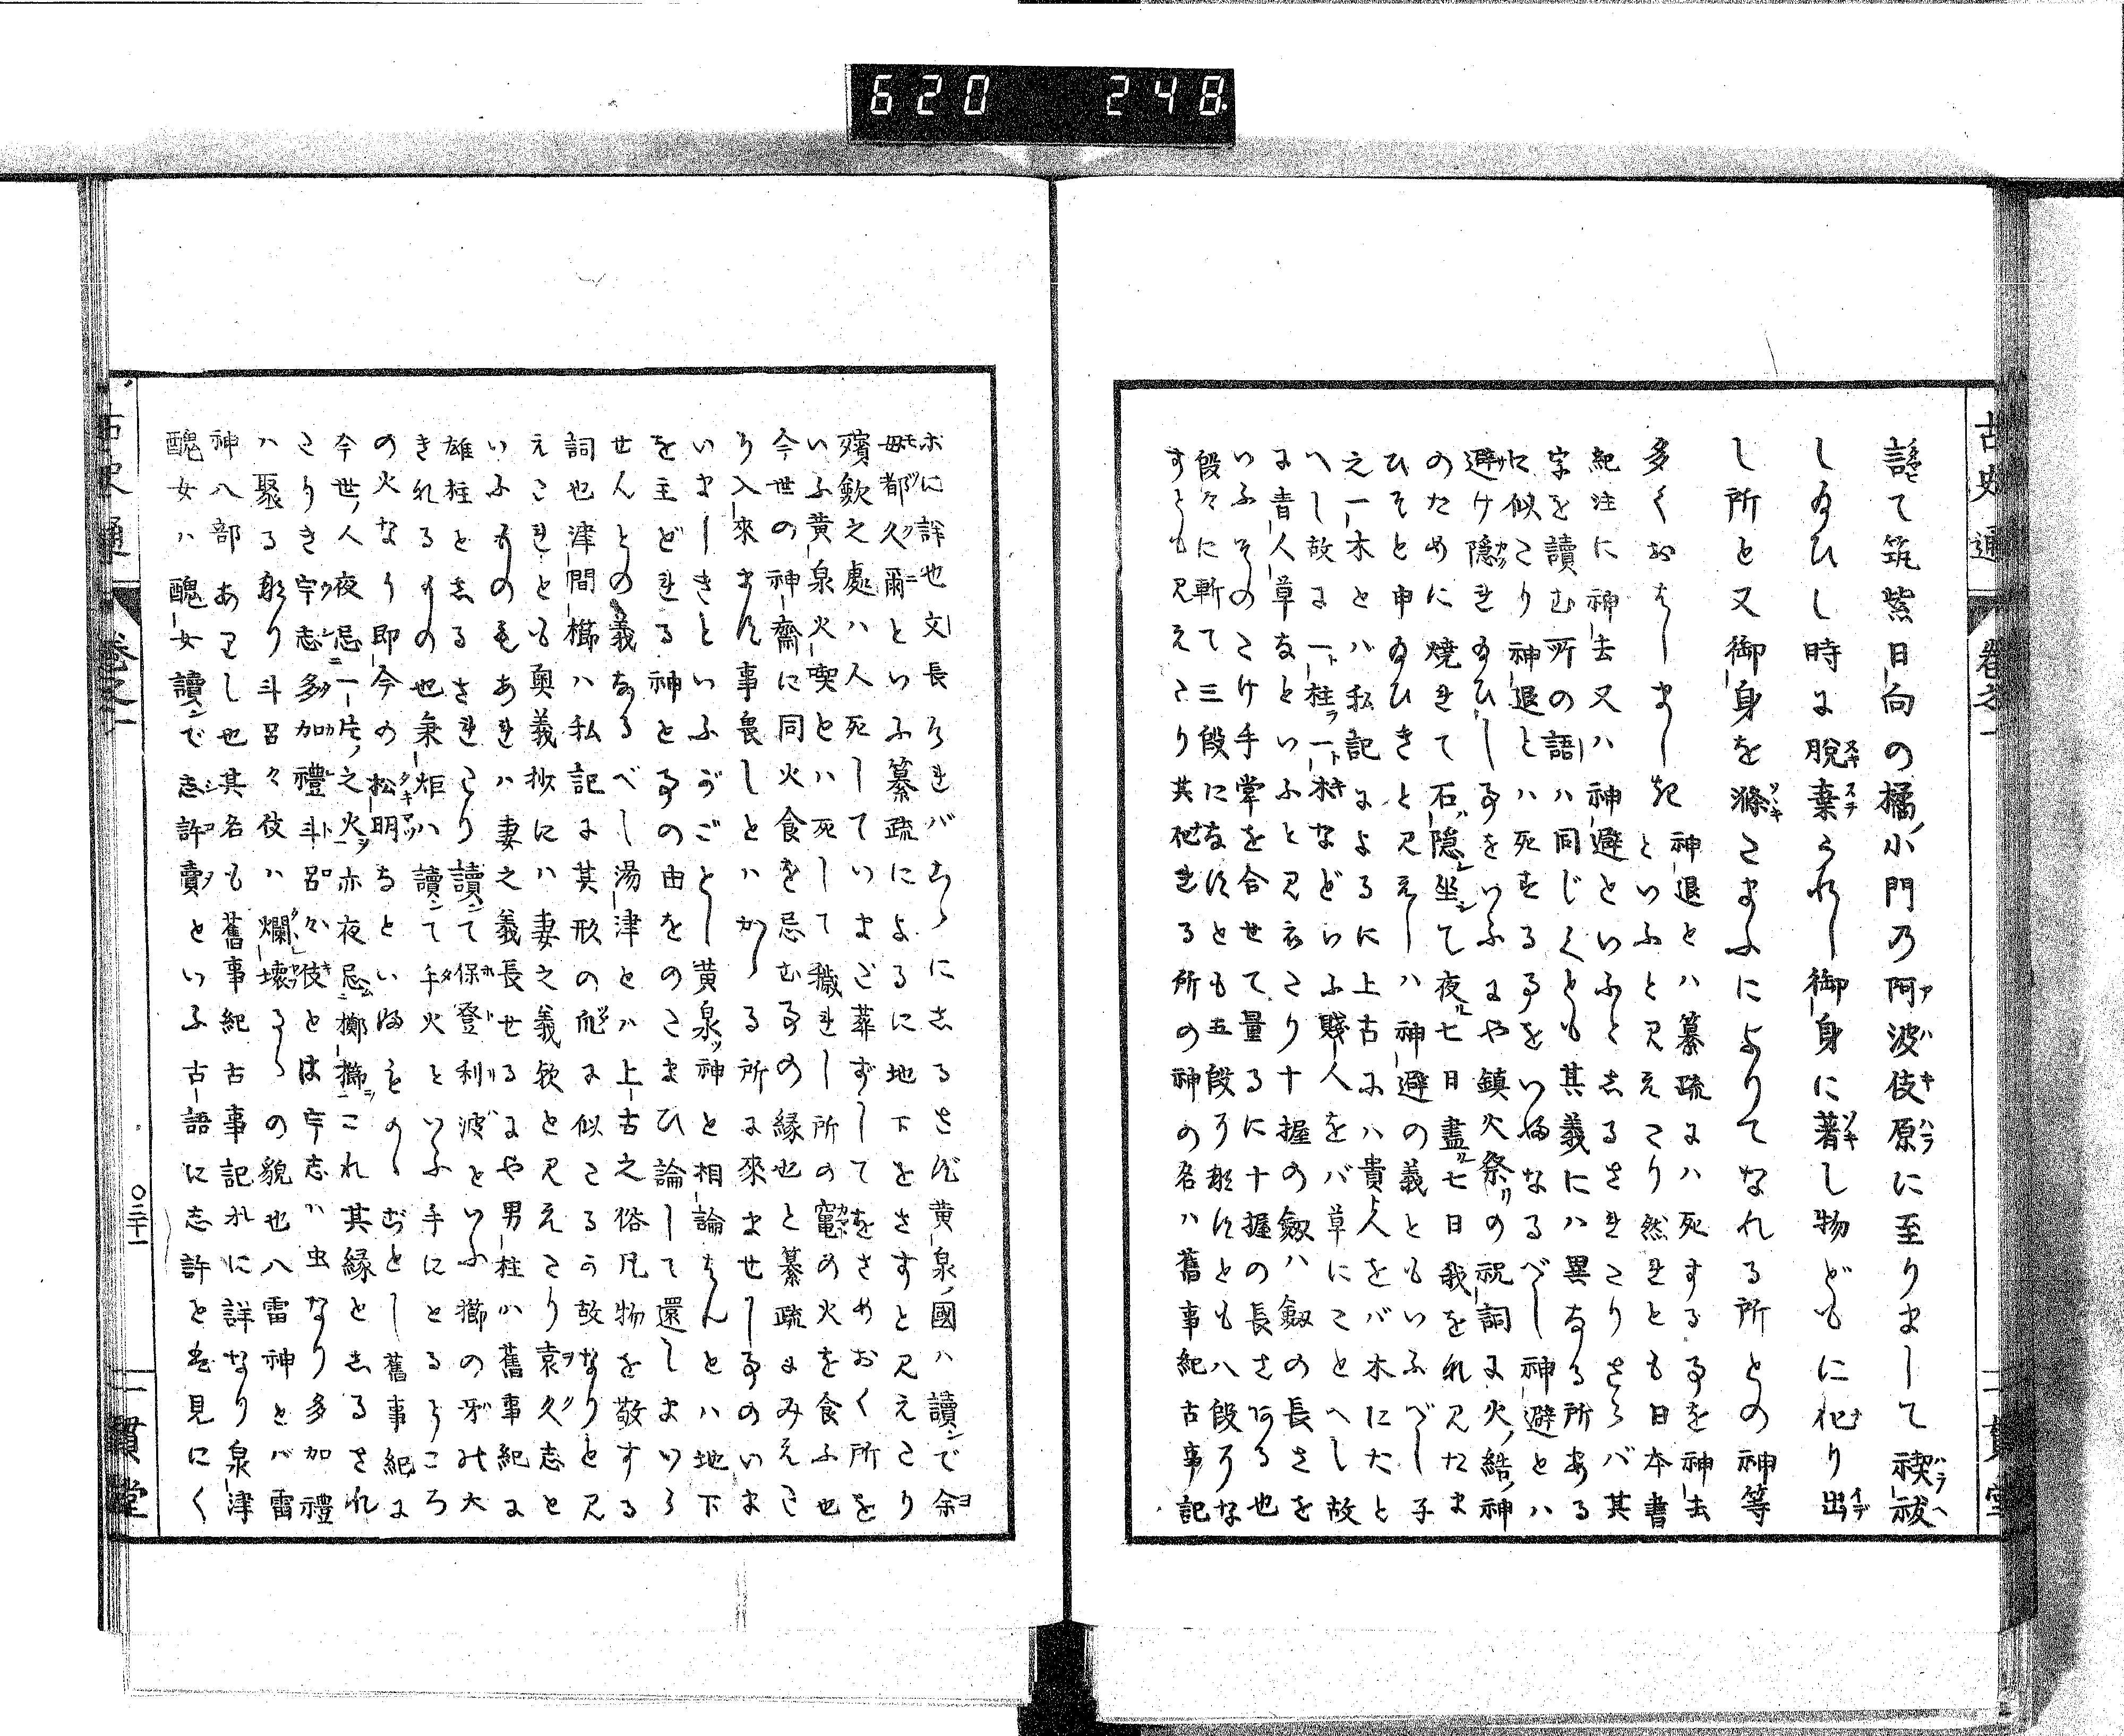 620 248
古史通 卷之一
一貫堂
詫て筑紫日向の橘小門乃阿波伎原に至りまして禊祓
し給ひし時に脱棄られし御身に著し物どもに化り出
し所と又御身を滌たまふによりてなれる所との神等
多くおはしましき
神退とハ纂疏にハ死する事を神去
といふと見えたり然れとも日本書
紀注に神去又ハ神避といふとしるされたりさらバ其
字を讀む所の語ハ同じくとも其義にハ異なる所ある
に似たり神退とハ死せる事をいぬなるべし神避とハ
避け隱れ給ひし事をいふにや鎮火祭の祝詞に火結神
のために焼れて石隱坐て夜七日晝七日我をれ見たま
ひそと申給ひきと見えしハ神避の義ともいふべし子
之一木とハ私記によるに上古にハ貴人をバ木にたと
へし故に一柱一木などいふ賤人をバ草にたとへし故
に青人草なといふと見えたり十握の劔ハ劔の長さを
いふそのたけ手掌を合せて量るに十握の長さある也
段々に斬て三段になすとも五段に斬すとも八段にな
すとも見えたり其化れる所の神の名ハ舊事紀古事記
ホに詳也文長けれバちゝにしるさず黄泉國ハ讀で余
母都久爾といふ纂疏によるに地下をさすと見えたり
殯斂之處ハ人死していまだ葬ずしてをさめおく所を
いふ黄泉火喫とハ死して穢れし所の竈の火を食ふ也
今世の神齋に同火食を忌む事の縁也と纂疏にみえた
り入來ませ事畏しとハかゝる所に來ませし事のいま
いましきといふがごとし黄泉神と相論はんとハ地下
を主どれる神と事の由をのたまひ論して還しまいら
せんとの義なるべし湯津とハ上古之俗凡物を敬する
詞也津間櫛ハ私記に其形の爪に似たるう故なりと見
えたれとも奥義抄にハ妻之義歟と見えたり袁久志と
いふもの毛あれハ妻之義長せるにや男柱ハ舊事紀に
雄柱としるされたり讀て保登利波といふ櫛の牙の大
きれるもの也秉炬ハ讀て手火といふ手にとるところ
の火なり即今の松明なといぬものゝ如とし舊事紀に
今世人夜忌一片之火亦夜忌擲櫛これ其縁としるされ
たりき宇志多加禮斗呂々伎とは宇志ハ虫なり多加禮
ハ聚る形り斗呂々伎ハ爛壊るゝの貌也八雷神とバ雷
神八部ありし也其名も舊事紀古事記れに詳なり泉津
醜女ハ醜女讀で志許賣といふ古語に志許と者見にく
古史通 卷之一 〇三十一 一貫堂